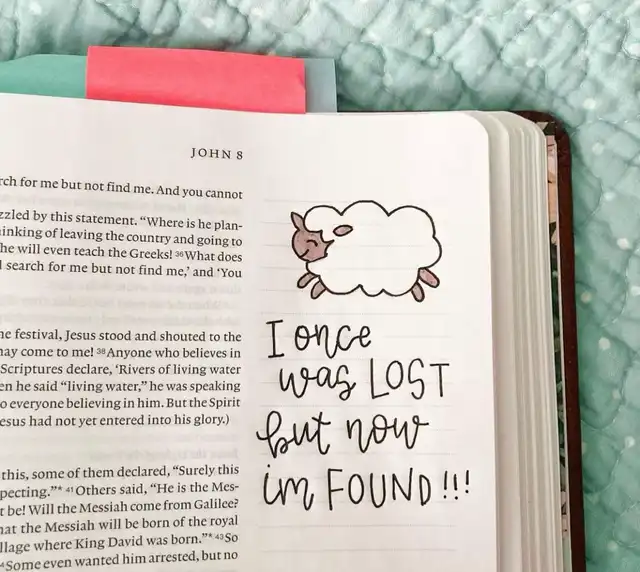 JOHN 8
rch for me but not find me. And you cannot
zzled by this statement. “Where is he plan-
inking of leaving the country and going to
he will even teach the Greeks! 36What does
l search for me but not find me,’ and ‘You
he festival, Jesus stood and shouted to the
may come to me! 38Anyone who believes in
Scriptures declare, ‘Rivers of living water
en he said “living water,” he was speaking
o everyone believing in him. But the Spirit
esus had not yet entered into his glory.)
this, some of them declared, “Surely this
pecting.”* 41Others said, “He is the Mes-
t be! Will the Messiah come from Galilee?
hat the Messiah will be born of the royal
llage where King David was born.”* 43So
Some even wanted him arrested, but no
I once
was LOST
but now
im FOUND!!!